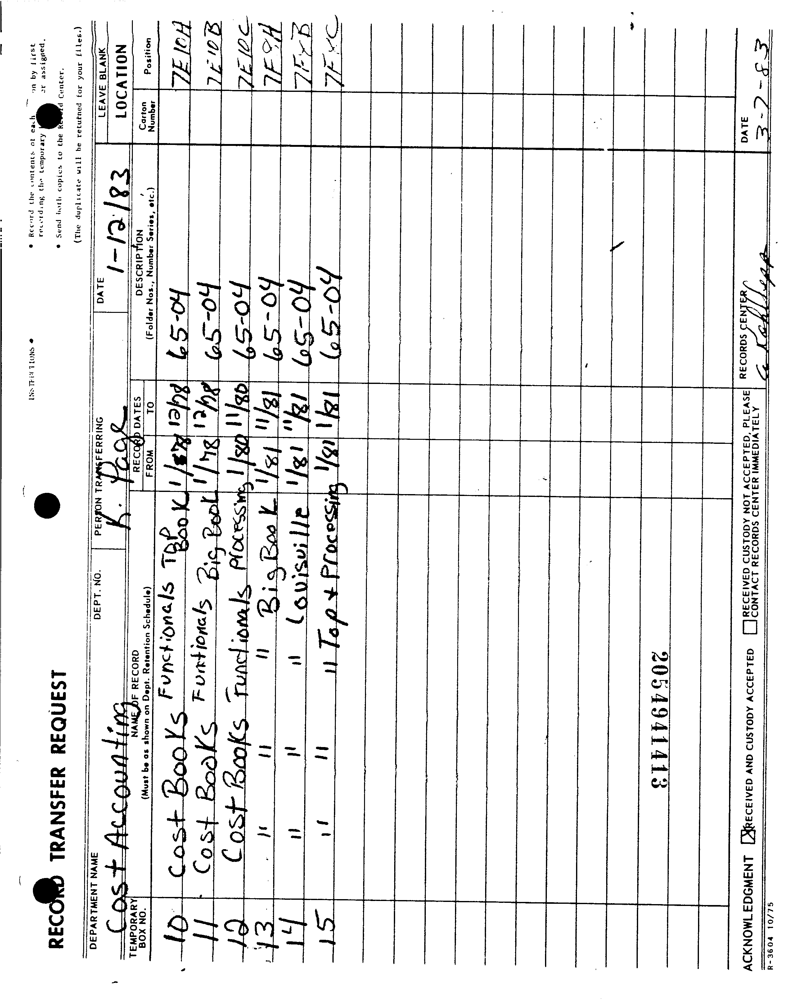 INSTRUCTIONS •
• Record the contents of each
recording the temporary
• Send both copies to the Record Center.
(The duplicate will be returned for your files.)
on by first
er assigned.
RECORD TRANSFER REQUEST
DEPARTMENT NAME DEPT. NO. PERSON TRANSFERRING DATE LEAVE BLANK
Cost Accounting K. Page 1-12/83 LOCATION
TEMPORARY BOX NO. NAME OF RECORD (Must be as shown on Dept. Retention Schedule) RECORD DATES FROM TO DESCRIPTION (Folder Nos., Number Series, etc.) Carton Number Position
10 Cost Books Functionals Top Book 1/78 12/78 65-04 7E10A
11 Cost Books Funtionals Big Book 1/78 12/78 65-04 7E10B
12 Cost Books Functionals Processing 1/80 11/80 65-04 7E10C
13 " " " Big Book 1/81 11/81 65-04 7F8A
14 " " " Louisville 1/81 11/81 65-04 7F8B
15 " " " Top + Processing 1/81 1/81 65-04 7F8C
2054941413
ACKNOWLEDGMENT X RECEIVED AND CUSTODY ACCEPTED RECEIVED CUSTODY NOT ACCEPTED, PLEASE CONTACT RECORDS CENTER IMMEDIATELY RECORDS CENTER DATE
3-7-83
R-3604 10/75